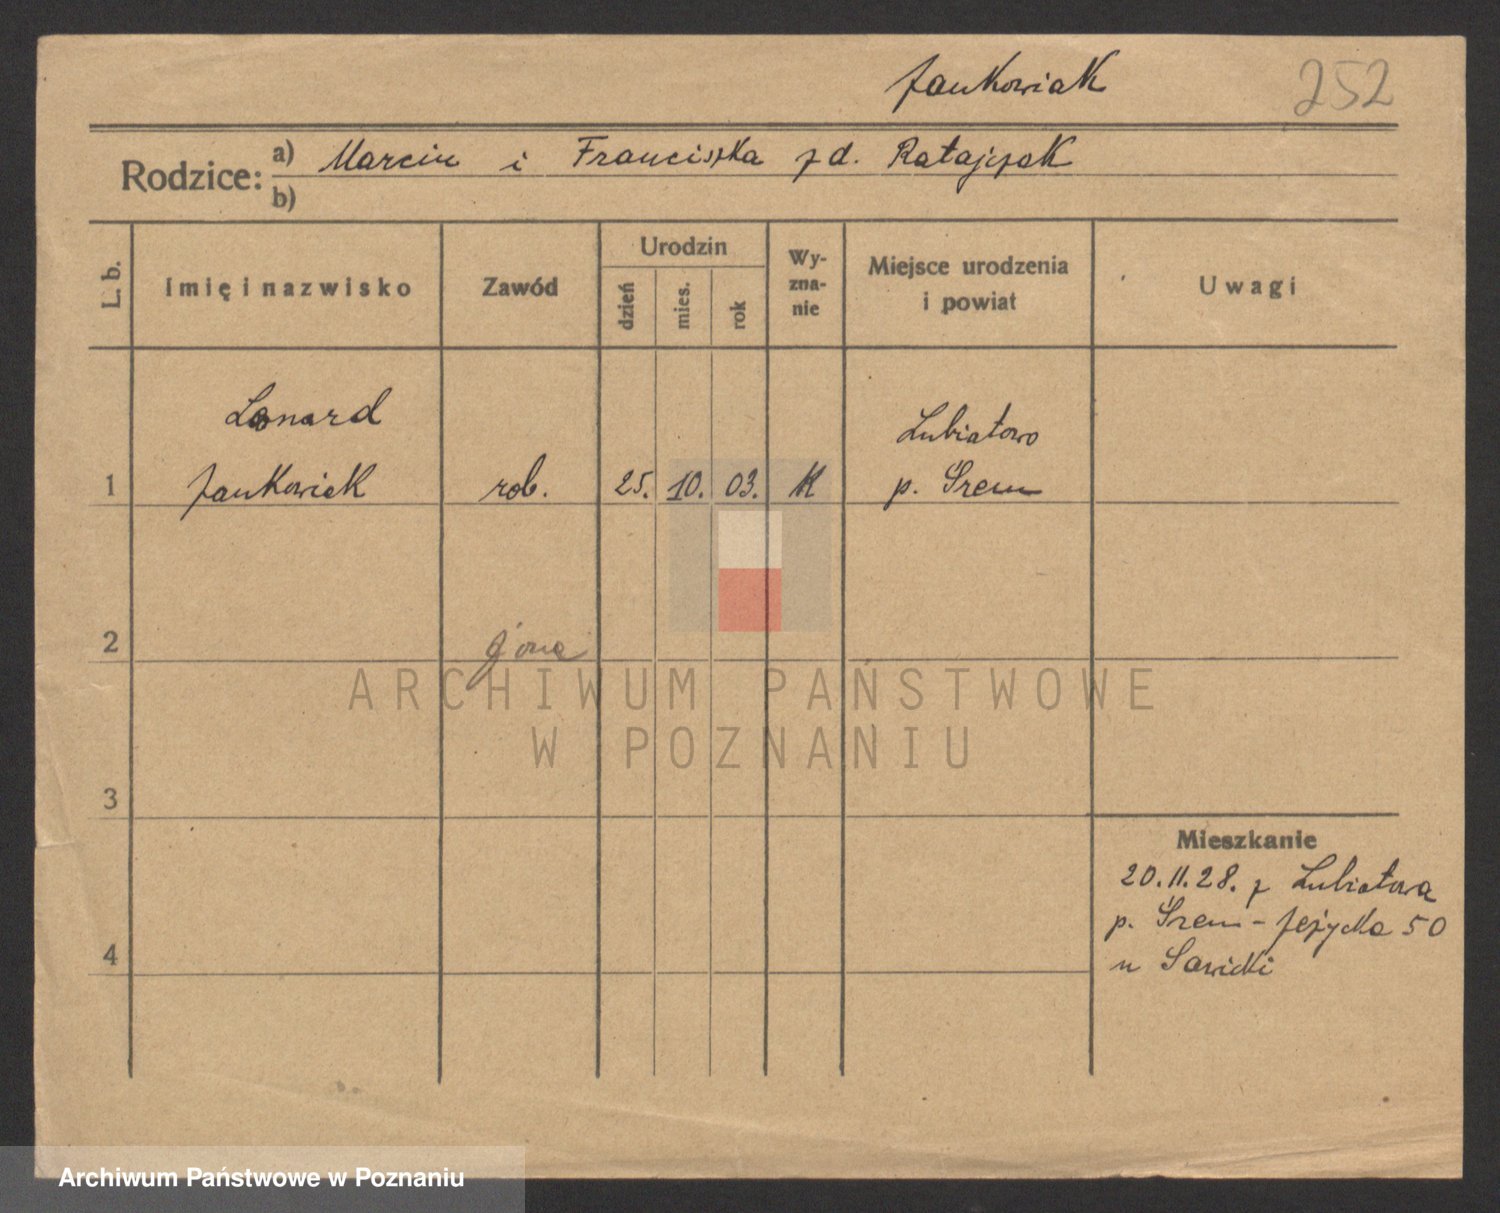 Jankowiak
252
Rodzice: a) Marcin i Franciszka z d. Ratajczak
b)
L. b.
Imię i nazwisko
Zawód
Urodzin
dzień
mies.
rok
Wy-
zna-
nie
Miejsce urodzenia
i powiat
Uwagi
Leonard
Lubiatowo
1 Jankowiak rob. 25. 10. 03. K p. Śrem
2
ARCHIWUM PAŃSTWOWE
W POZNANIU
3
Mieszkanie
20.11.28. z Lubiatowa
p. Śrem - Jeżycka 50
4 u Sawicki
Archiwum Państwowe w Poznaniu